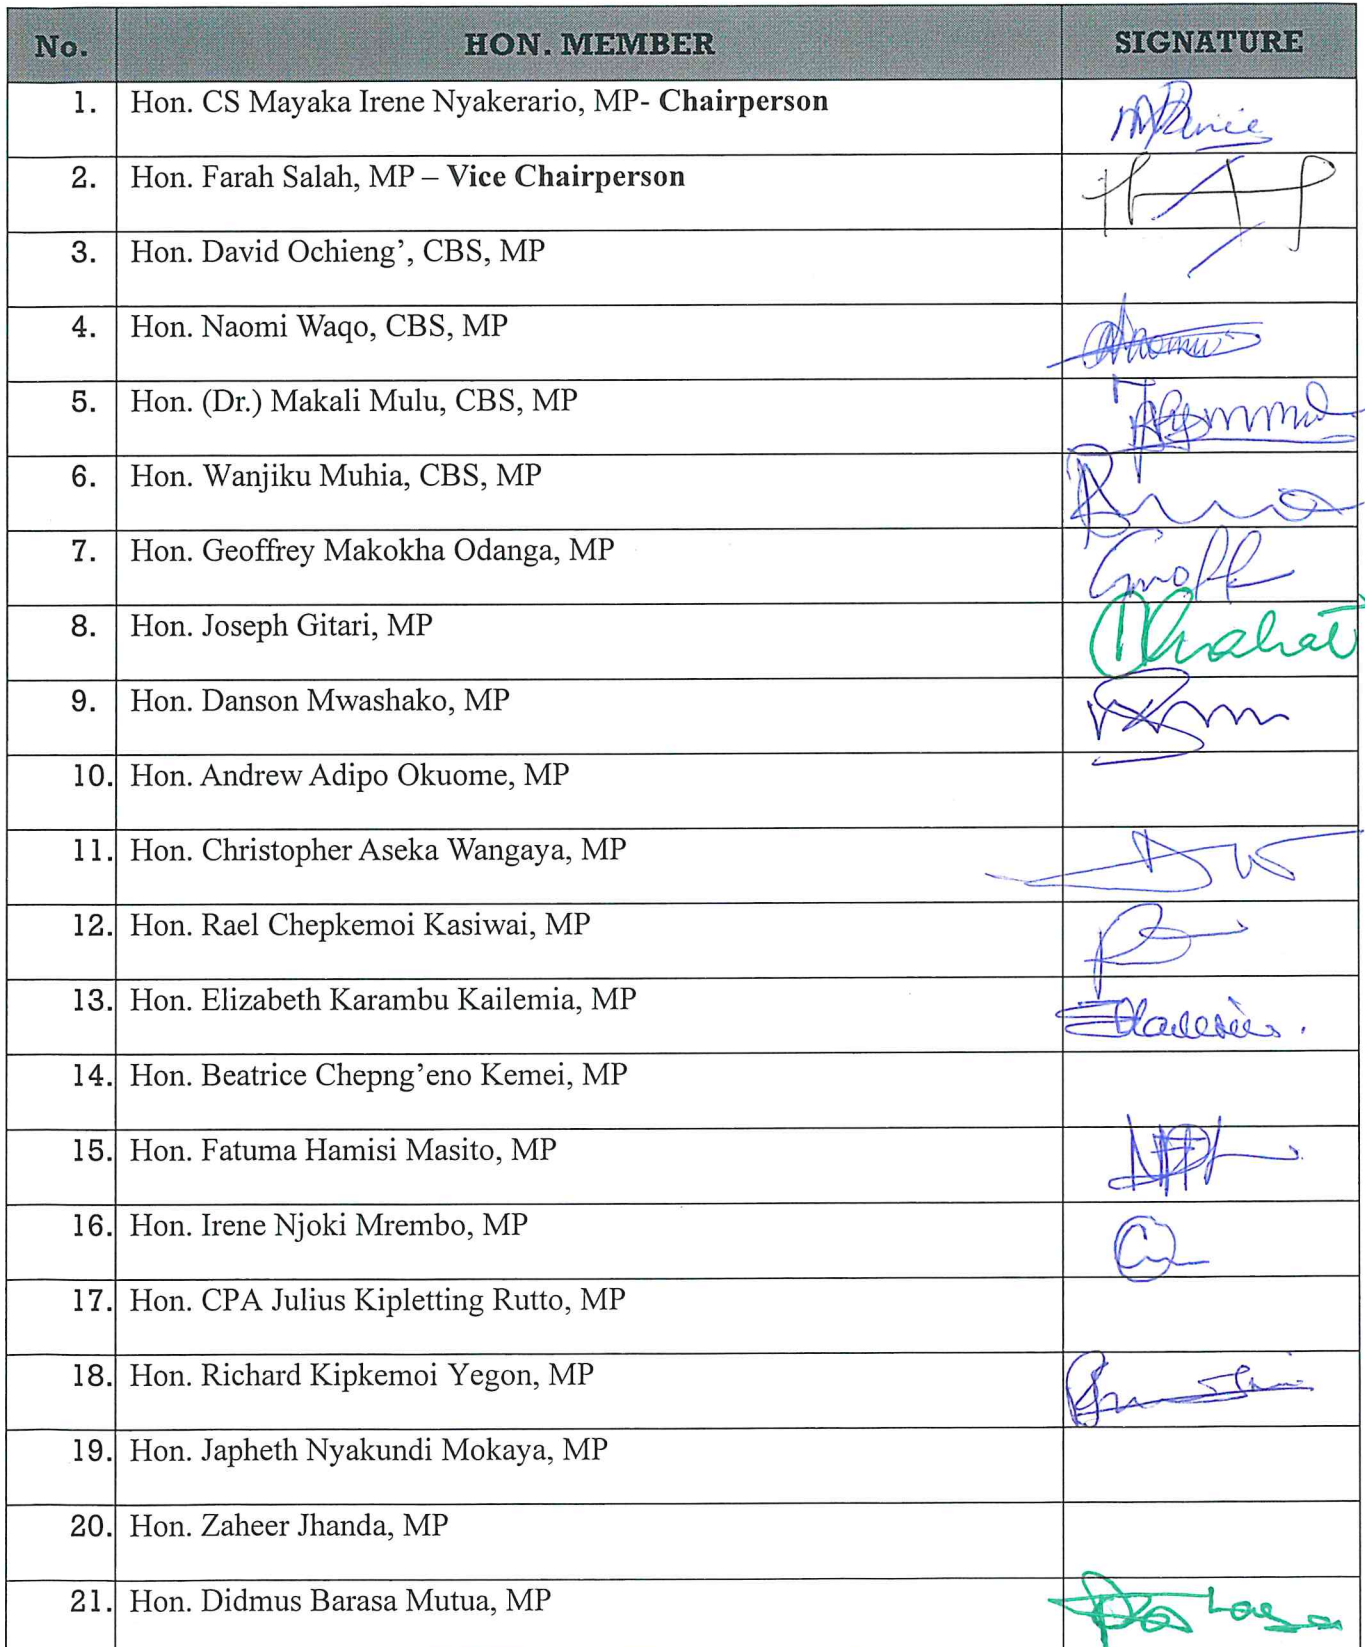 No. HON. MEMBER SIGNATURE
1. Hon. CS Mayaka Irene Nyakerario, MP- Chairperson
2. Hon. Farah Salah, MP – Vice Chairperson
3. Hon. David Ochieng’, CBS, MP
4. Hon. Naomi Waqo, CBS, MP
5. Hon. (Dr.) Makali Mulu, CBS, MP
6. Hon. Wanjiku Muhia, CBS, MP
7. Hon. Geoffrey Makokha Odanga, MP
8. Hon. Joseph Gitari, MP
9. Hon. Danson Mwashako, MP
10. Hon. Andrew Adipo Okuome, MP
11. Hon. Christopher Aseka Wangaya, MP
12. Hon. Rael Chepkemoi Kasiwai, MP
13. Hon. Elizabeth Karambu Kailemia, MP
14. Hon. Beatrice Chepng’eno Kemei, MP
15. Hon. Fatuma Hamisi Masito, MP
16. Hon. Irene Njoki Mrembo, MP
17. Hon. CPA Julius Kipletting Rutto, MP
18. Hon. Richard Kipkemoi Yegon, MP
19. Hon. Japheth Nyakundi Mokaya, MP
20. Hon. Zaheer Jhanda, MP
21. Hon. Didmus Barasa Mutua, MP